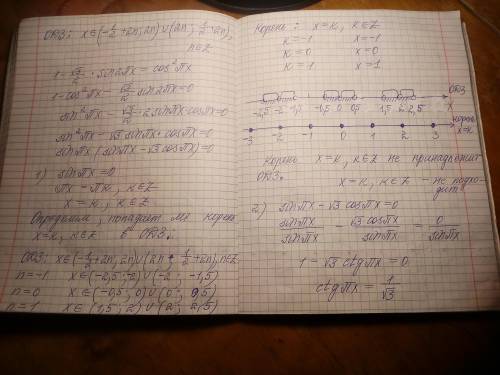 ОДЗ: x∈(-1/2+2n; 2n)∪(2n; 1/2+2n),
n∈Z
1-√3/2·sin2πx=cos²πx
1-cos²πx-√3/2 sin2πx=0
sin²πx-√3/2·2sinπx·cosπx=0
sin²πx-√3 sinπx·cosπx=0
sinπx(sinπx-√3cosπx)=0
1) sinπx=0
πx=πк, к∈Z
x=к, к∈Z
Определим, попадает ли корень
x=к, к∈Z в ОДЗ:
ОДЗ: x∈(-1/2+2n; 2n)∪(2n; 1/2+2n), n∈Z
n=-1 x∈(-2,5; -2)∪(-2; -1,5)
n=0 x∈(-0,5; 0)∪(0; 0,5)
n=1 x∈(1,5; 2)∪(2; 2,5)
Корень: x=к, к∈Z
к=-1 x=-1
к=0 x=0
к=1 x=1
ОДЗ
-2,5 -2 -1,5 -0,5 0 0,5 1,5 2 2,5 x
корень
x=к
-3 -2 -1 0 1 2 3
Корень x=к, к∈Z не принадлежит
ОДЗ.
x=к, к∈Z - не подхо-
дит
2) sinπx-√3cosπx=0
sinπx/sinπx - √3cosπx/sinπx = 0/sinπx
1-√3ctgπx=0
ctgπx=1/√3